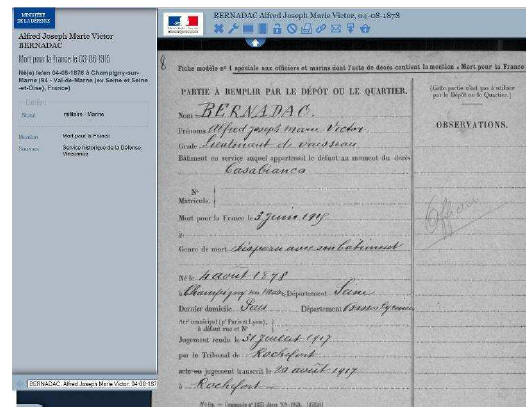 MINISTÈRE
DE LA DÉFENSE
Alfred Joseph Marie Victor
BERNADAC
Mort pour la France le 03-06-1915
Né(e) le/en 04-08-1878 à Champigny-sur-
Marne (94 - Val-de-Marne (ex Seine et Seine
-et-Oise), France)
militaire - Marine
Mention Mort pour la France
Service historique de la Défense,
Vincennes
BERNADAC, Alfred Joseph Marie Victor, 04-08-187
BERNADAC Alfred Joseph Marie Victor, 04-08-1878
Fiche modèle nº 1 spéciale aux officiers et marins dont l'acte de décès contient la mention « Mort pour la France
PARTIE À REMPLIR PAR LE DÉPÔT OU LE QUARTIER.
Nom BERNADAC.
Prénoms Alfred Joseph Marie Victor
Grade Lieutenant de vaisseau
Bâtiment ou service auquel appartenait le défunt au moment du décès
Casabianca
Nº
Matricule.
Mort pour la France le 3 juin 1915
à
Genre de mort disparu avec son bâtiment
Né le 4 août 1878
à Champigny sur Marne Département Seine
Dernier domicile Département Basses Pyrénées
Arrᵗ municipal (pʳ Paris et Lyon),
à défaut rue et Nº
Jugement rendu le 31 juillet 1917
par le Tribunal de Rochefort
acte ou jugement transcrit le 20 août 1917
à Rochefort
(Cette partie n'est pas à utiliser
par le Dépôt ou le Quartier.)
OBSERVATIONS.